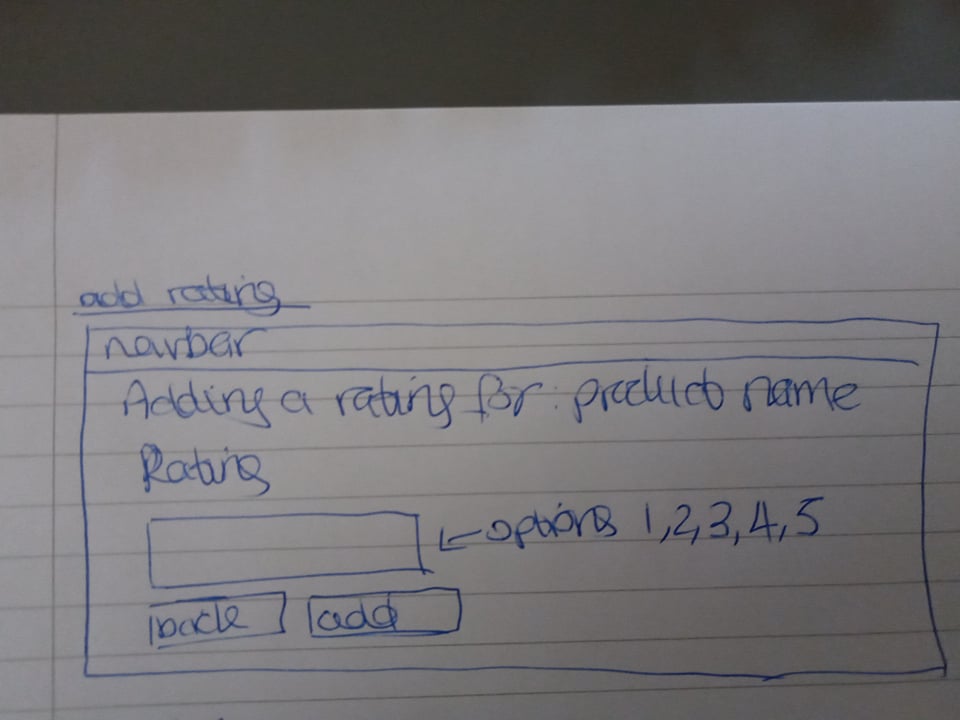 add rating
navbar
Adding a rating for: product name
Rating
← options 1,2,3,4,5
back add